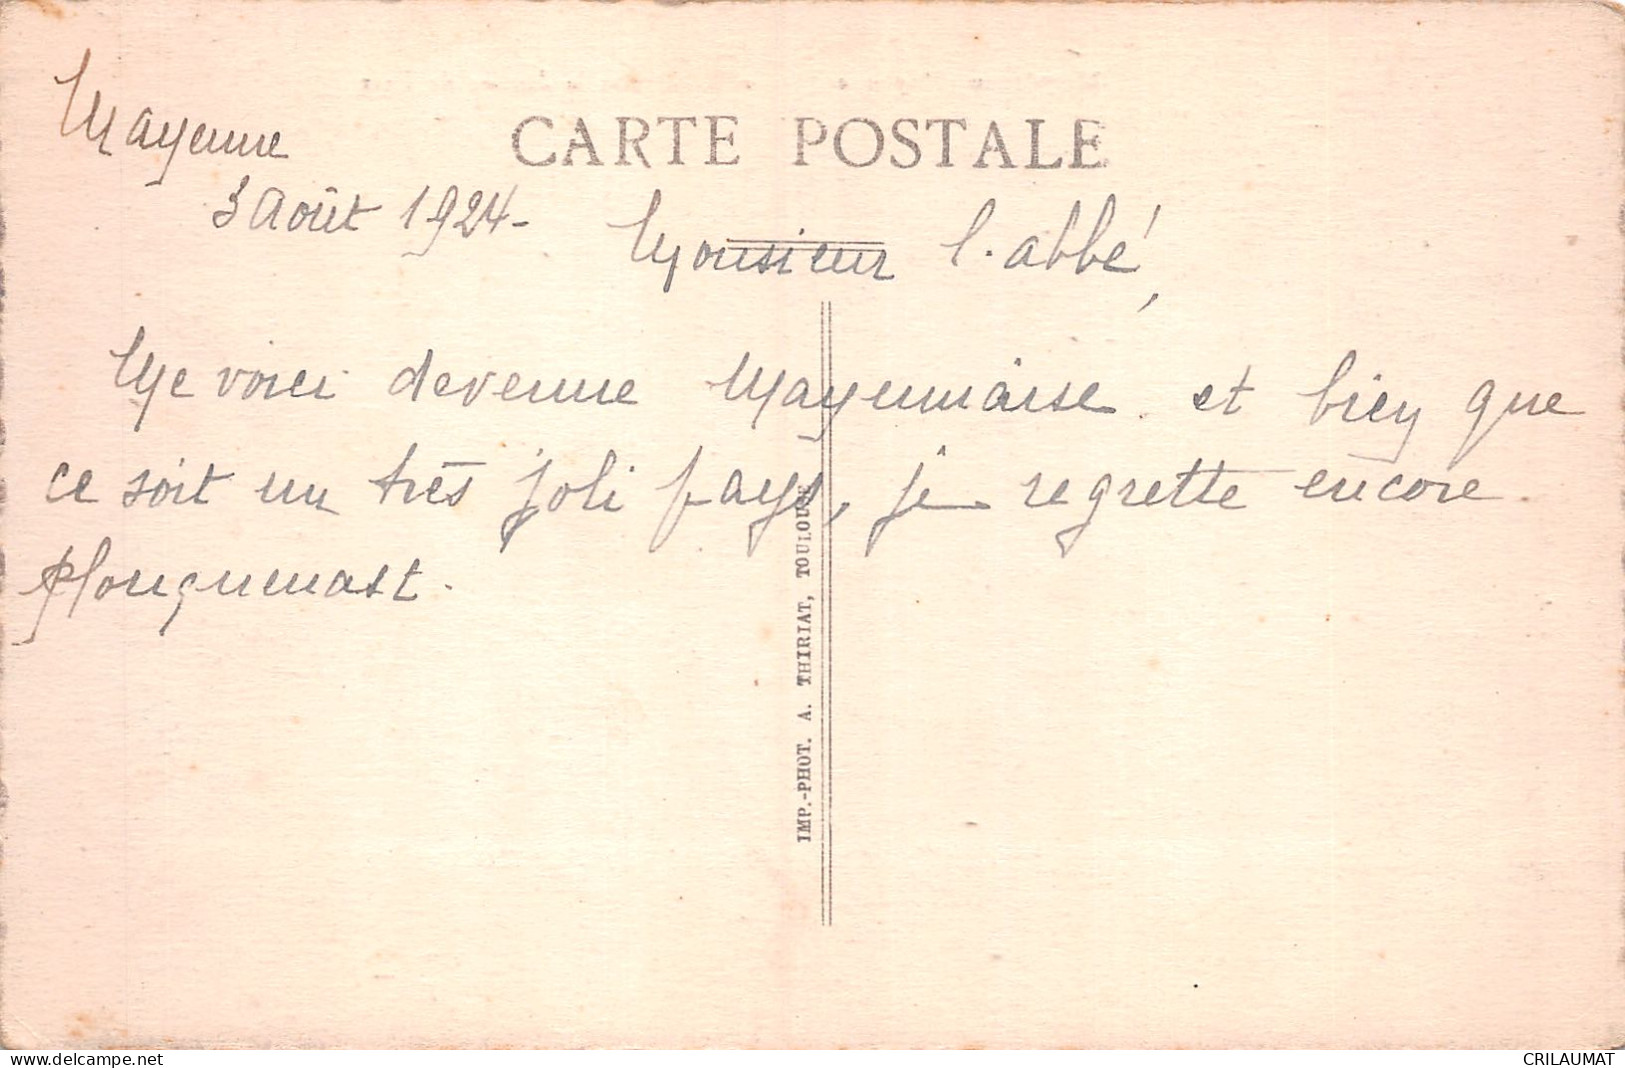 CARTE POSTALE
Mayenne
3 Août 1924-
Monsieur l'abbé,
Me voici devenue Mayennaise et bien que
ce soit un très joli pays, je regrette encore
Plouguenast.
IMP.-PHOT. A. THIRIAT, TOULOUSE
www.delcampe.net
CRILAUMAT